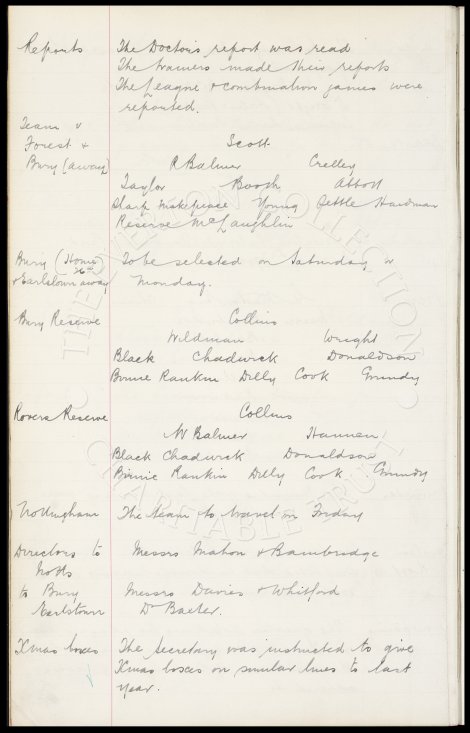 Reports The Doctors report was read
The trainers made their reports
The League & combination games were
reported.
Team v
Forest & Scott
Bury (away) R Balmer Crelley
Taylor Booth Abbott
Sharp Makepeace Young Settle Hardman
Reserve McLaughlin
Bury (Home To be selected on Saturday or
26th
& Earlstown away Monday.
Bury Reserve Collins
Wildman Wright
Black Chadwick Donaldson
Binnie Rankin Dilly Cook Grundy
Rovers Reserve Collins
W Balmer Hannen
Black Chadwick Donaldson
Binnie Rankin Dilly Cook Grundy
Nottingham The team to travel on Friday
Directors to Messrs Mahon & Bainbridge
Notts
to Bury Messrs Davies & Whitford
Earlstown Dr Baxter.
Xmas boxes The Secretary was instructed to give
Xmas boxes on similar lines to last
year.
THE EVERTON COLLECTION
CHARITABLE TRUST